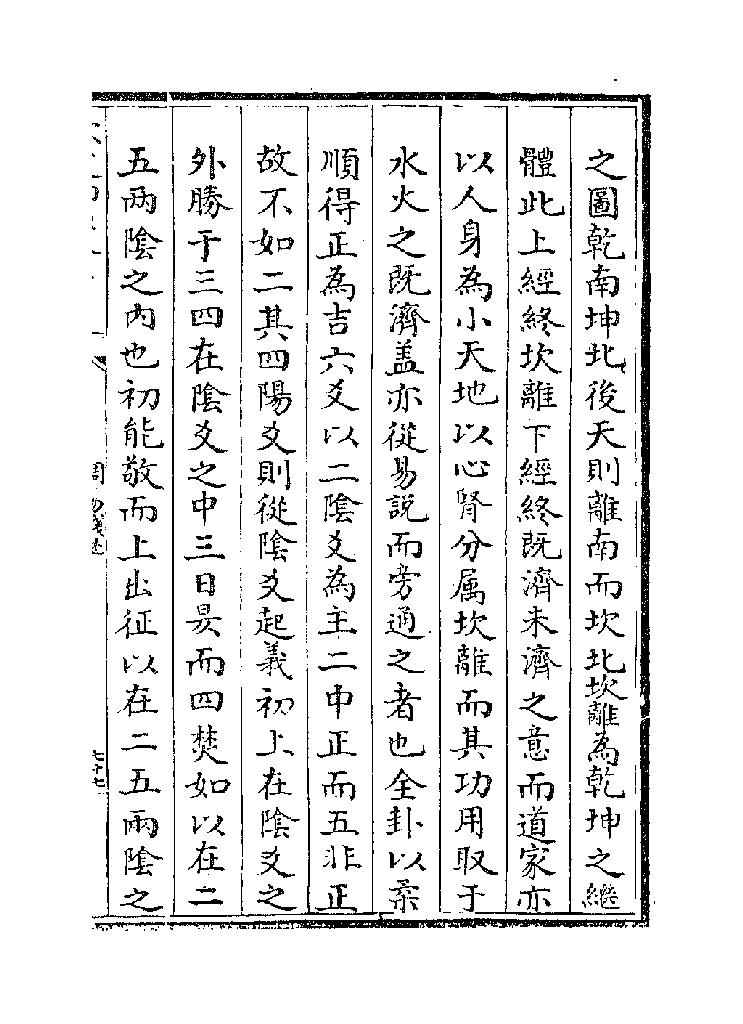 之圖乾南坤北後天則離南而坎北坎離為乾坤之繼
體此上經終坎離下經終既濟未濟之意而道家亦
以人身為小天地以心腎分属坎離而其功用取于
水火之既濟盖亦從易說而旁通之者也全卦以柔
順得正為吉六爻以二陰爻為主二中正而五非正
故不如二其四陽爻則從陰爻起義初上在陰爻之
外勝于三四在陰爻之中三日昃而四焚如以在二
五兩陰之内也初能敬而上出征以在二五兩陰之
七十七